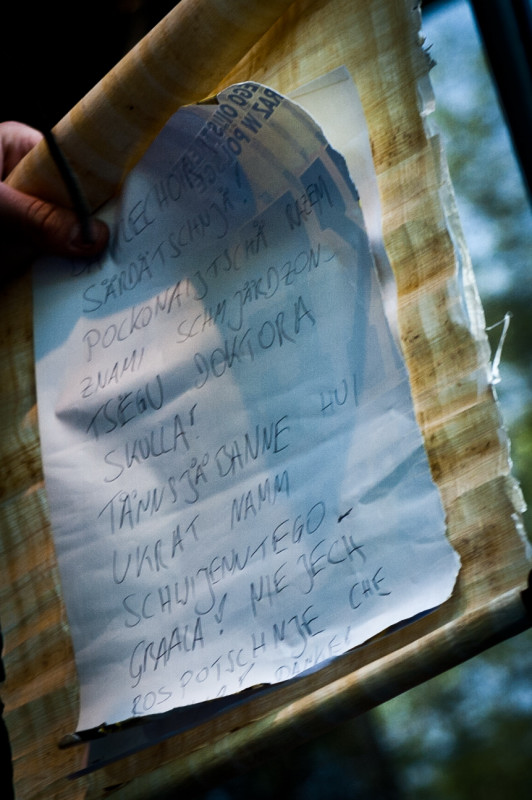 LECHOTE
SÄRDÄTSCHNJÄ!
POCKONAJTSCHÄ RAZEM
ZNAMI SCHMJÄRDZON-
TSEGU DOKTORA
SKULLA!
TÄNNSJÄBANNE HUI
UKRAT NAMM
SCHWIJENNTEGO-
GRAALA! NIEJECH
ROSPOTSCHNJE CHE
DANKE!